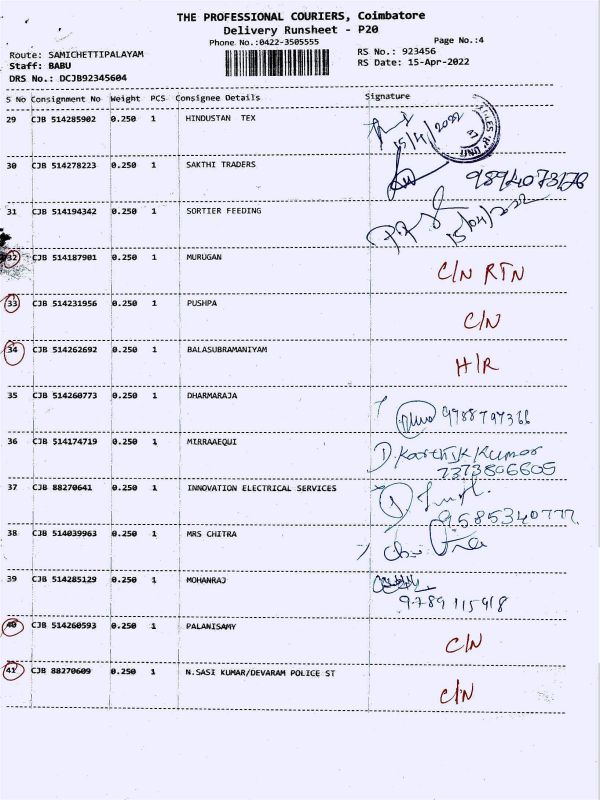 THE PROFESSIONAL COURIERS, Coimbatore
Delivery Runsheet - P20
Phone No.:0422-3505555
Page No.:4
Route: SAMICHETTIPALAYAM
RS No.: 923456
Staff: BABU
RS Date: 15-Apr-2022
DRS No.: DCJB92345604
S No Consignment No Weight PCS Consignee Details Signature
29 CJB 514285902 0.250 1 HINDUSTAN TEX 15/4/2022
30 CJB 514278223 0.250 1 SAKTHI TRADERS
31 CJB 514194342 0.250 1 SORTIER FEEDING 15/04/2022
32 CJB 514187901 0.250 1 MURUGAN C/N RTN
33 CJB 514231956 0.250 1 PUSHPA C/N
34 CJB 514262692 0.250 1 BALASUBRAMANIYAM H/R
35 CJB 514260773 0.250 1 DHARMARAJA 9788797366
36 CJB 514174719 0.250 1 MIRRAAEQUI D.Karthik Kumar
7373806605
37 CJB 88270641 0.250 1 INNOVATION ELECTRICAL SERVICES
9585340777
38 CJB 514039963 0.250 1 MRS CHITRA
39 CJB 514285129 0.250 1 MOHANRAJ
40 CJB 514260593 0.250 1 PALANISAMY C/N
41 CJB 88270609 0.250 1 N.SASI KUMAR/DEVARAM POLICE ST C/N